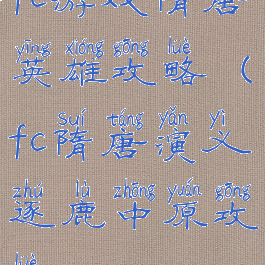 fc游戏隋唐
yīng xióng gōng lüè
英雄攻略（
suí táng yǎn yì
fc隋唐演义
zhú lù zhōng yuán gōng
逐鹿中原攻
lüè